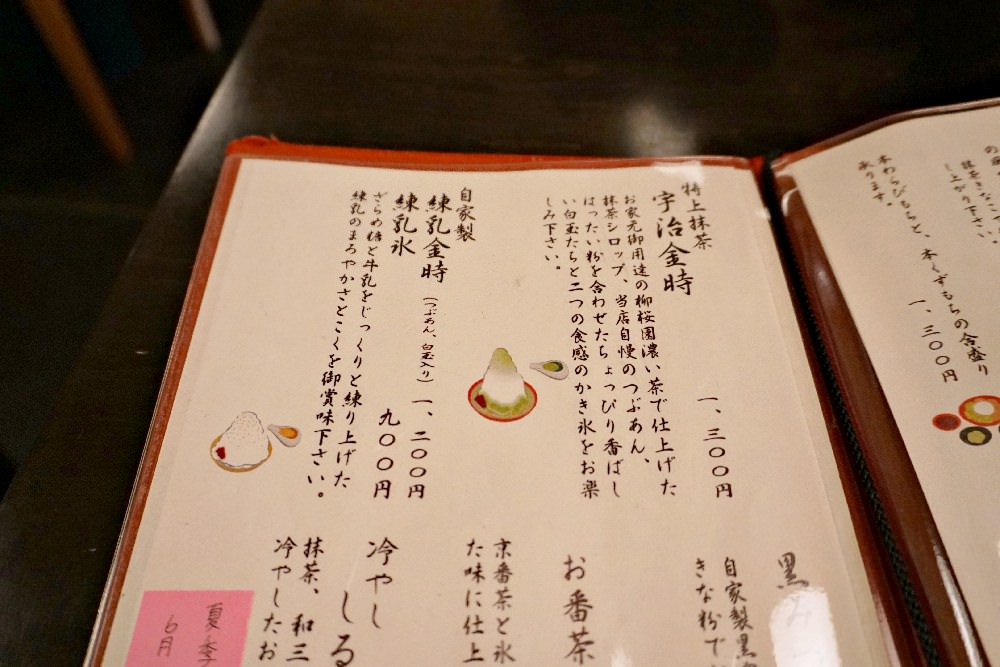 抹茶きなこ
し上がり下さい。
本わらびもちと、本くずもちの合盛り
一、三〇〇円
承ります。
特上抹茶
宇治金時
一、三〇〇円
お家元御用達の柳桜園濃い茶で仕上げた
抹茶シロップ、当店自慢のつぶあん、
はったい粉を合わせたちょっぴり番ばし
い白玉たちと二つの食感のかき氷をお楽
しみ下さい。
自家製
練乳金時（つぶあん、白玉入り）一、二〇〇円
練乳氷 九〇〇円
ざらめ糖と牛乳をじっくりと練り上げた
練乳のまろやかさとこくを御賞味下さい。
黒み
自家製黒
きな粉で
お番茶
京番茶と氷
た味に仕上
冷やし しる
抹茶、和三
冷やしたお
夏季
6月